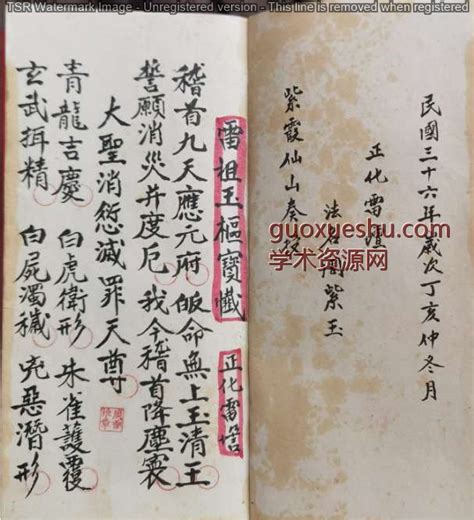 TSR Watermark Image - Unregistered version - This line is removed when registered
民國三十六年歲次丁亥仲冬月
正化雷壇
法名 紫玉
紫霞仙山奏授
guoxueshu.com
学术资源网
雷祖玉樞寶懺 正化雷壇
稽首九天應元府 皈命無上玉清王
誓願消災并度厄 我今稽首降塵寰
大聖消愆滅罪天尊
青龍吉慶 白虎衛形 朱雀護覆
玄武揖精 白屍濁穢 兇惡潛形